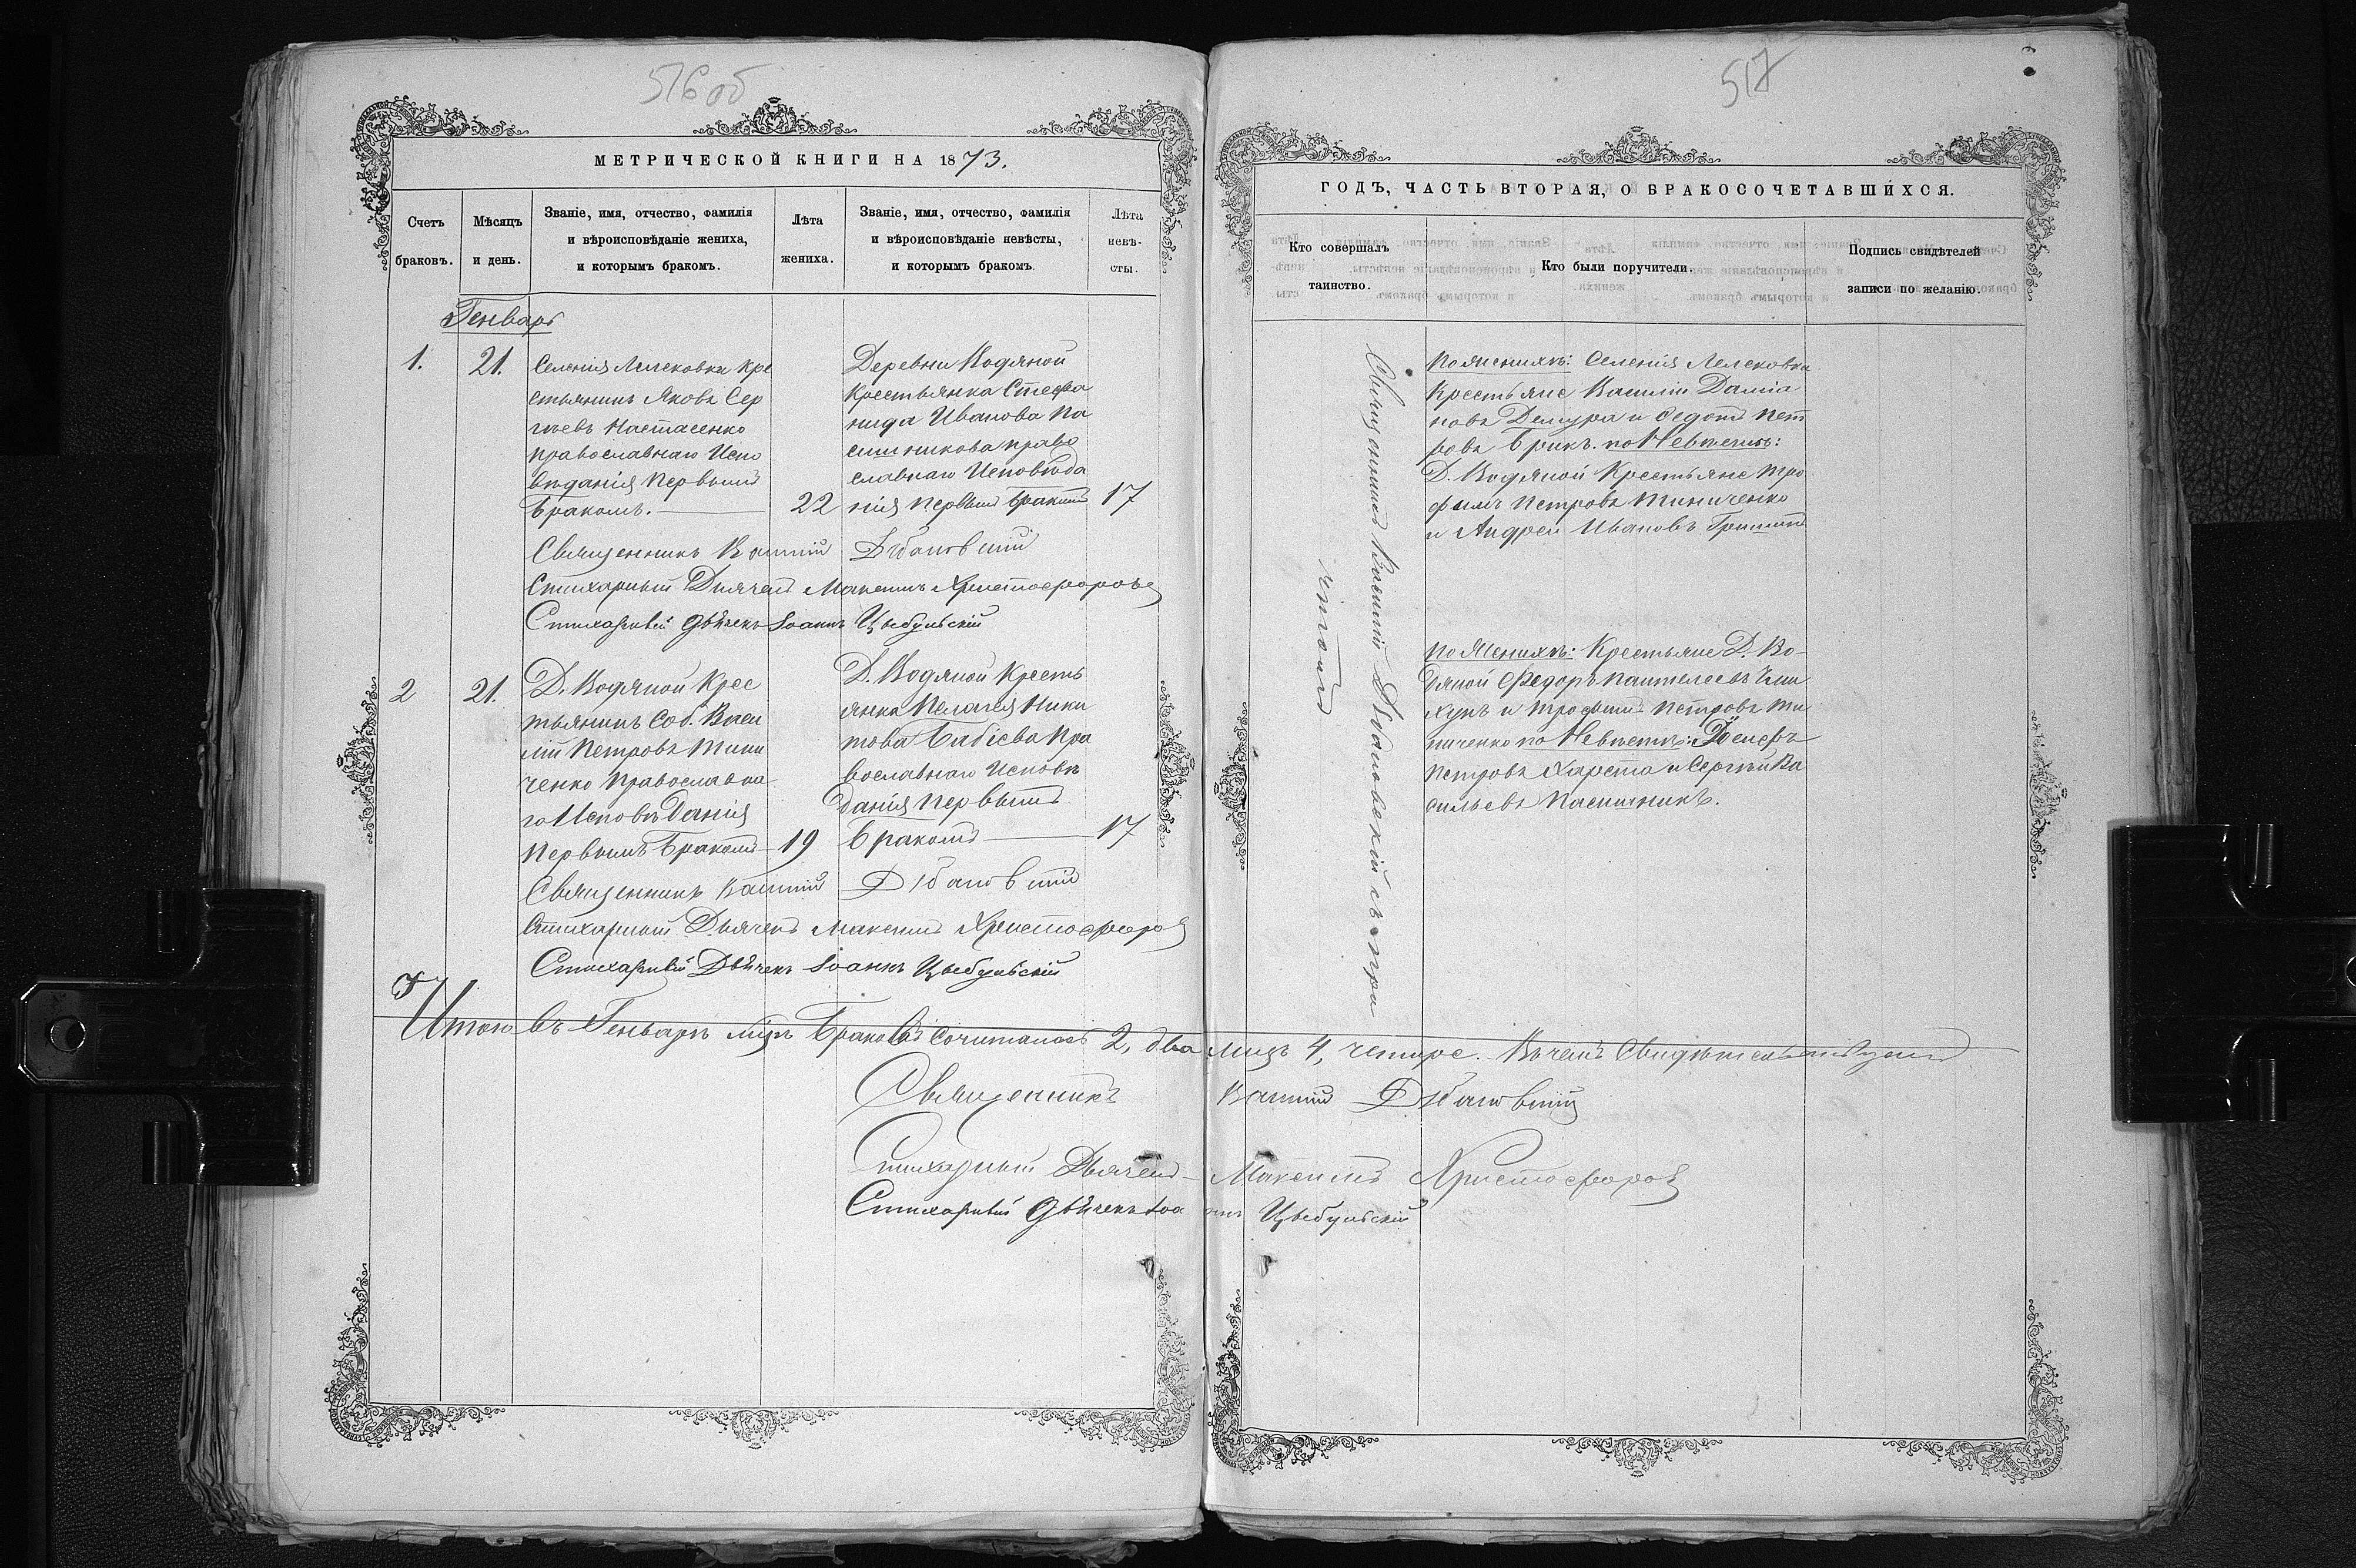 516 об
МЕТРИЧЕСКОЙ КНИГИ НА 1873.
Счетъ браковъ.
Мѣсяцъ и день.
Званіе, имя, отчество, фамилія и вѣроисповѣданіе жениха, и которымъ бракомъ.
Лѣта жениха.
Званіе, имя, отчество, фамилія и вѣроисповѣданіе невѣсты, и которымъ бракомъ.
Лѣта невѣ-сты.
Генварь
1.
21.
Селенія Лелековки Кре
стьянинъ Яковъ Сер
гѣевъ Настасенко
православнаго Испо
вѣданія первымъ
Бракомъ.
22
Деревни Водяной
Крестьянка Стефа
нида Иванова Па
сишникова право
славнаго Исповѣда
нія первымъ бракомъ
17
Священникъ Василій Дѣбановскій
Стихарный Дьячекъ Максимъ Христофоровъ
Стихарный Дьячекъ Іоаннъ Цыбульскій
2
21.
Д. Водяной Крес
тьянинъ Соб. Васи
лій Петровъ Тини
ченко Православна
го Исповѣданія
Первымъ Бракомъ
19
Д. Водяной Кресть
янка Пелагея Ники
това Бабіева Пра
вославнаго Исповѣ
данія первымъ
бракомъ
17
Священникъ Василій Дѣбановскій
Стихарный Дьячекъ Максимъ Христофоровъ
Стихарный Дьячекъ Іоаннъ Цыбульскій
Итого въ Генварѣ мцѣ Браковъ Сочиталось 2, два лицъ 4, четыре. Въ чемъ Свидѣтельствуемъ
Священникъ Василій Дѣбановскій
Стихарный Дьячекъ Максимъ Христофоровъ
Стихарный Дьячекъ Іоаннъ Цыбульскій
517
ГОДЪ, ЧАСТЬ ВТОРАЯ, О БРАКОСОЧЕТАВШИХСЯ.
Кто совершалъ таинство.
Кто были поручители.
Подпись свидѣтелей записи по желанію.
Священникъ Василій Дѣбановскій съ при
чтомъ
По женихѣ: Селенія Лелековки
Крестьяне Василій Даміа
новъ Демура и Федотъ Пет
ровъ Брикъ. по Невѣстѣ:
Д. Водяной Крестьяне Тро
фимъ Петровъ Тиниченко
и Андрей Ивановъ
по Женихѣ: Крестьяне Д. Во-
дяной Федоръ Пантелеевъ
и Трофимъ Петровъ Ти
ниченко по Невѣстѣ:
Петровъ Харета и Сергѣй Ва
сильевъ Пасишникъ.